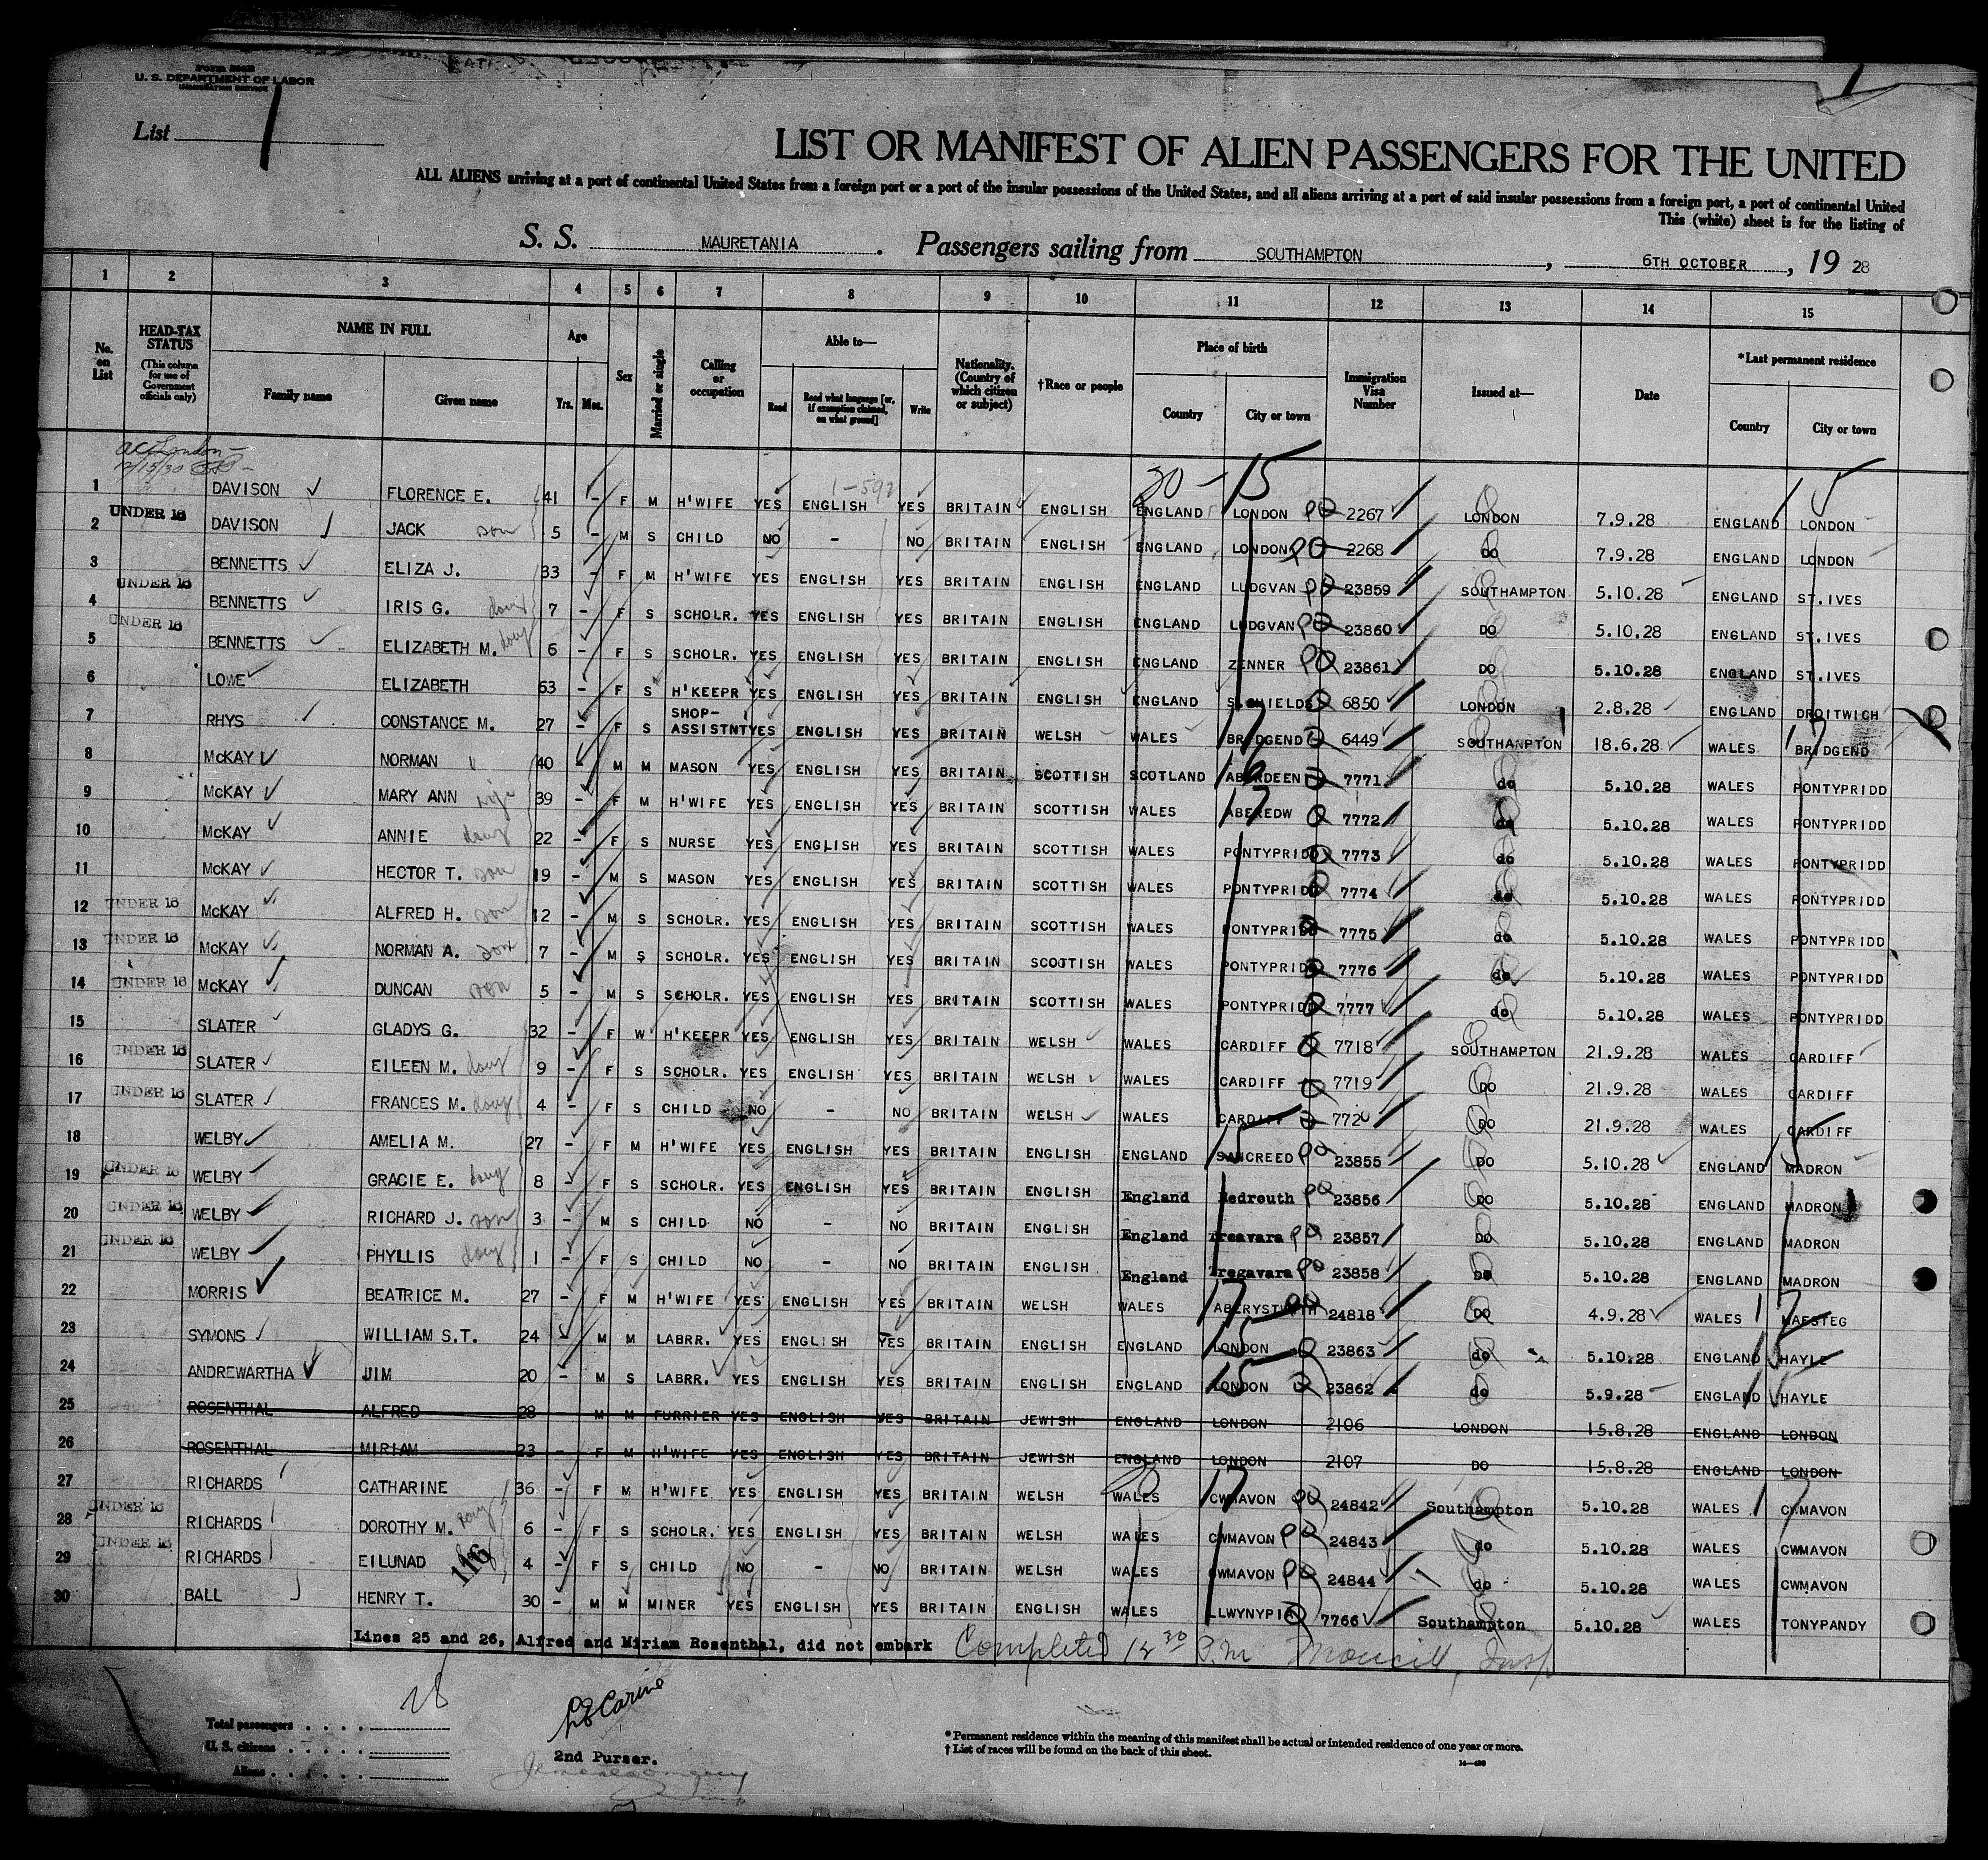 Form 500B
U. S. DEPARTMENT OF LABOR
IMMIGRATION SERVICE
List 1
LIST OR MANIFEST OF ALIEN PASSENGERS FOR THE UNITED
ALL ALIENS arriving at a port of continental United States from a foreign port or a port of the insular possessions of the United States, and all aliens arriving at a port of said insular possessions from a foreign port, a port of continental United
This (white) sheet is for the listing of
S. S. MAURETANIA. Passengers sailing from SOUTHAMPTON, 6TH OCTOBER, 19 28
1 2 3 4 5 6 7 8 9 10 11 12 13 14 15
No. on List HEAD-TAX STATUS (This column for use of Government officials only) NAME IN FULL Family name Given name Age Yrs. Mos. Sex Married or single Calling or occupation Able to— Read Read what language [or, if exemption claimed, on what ground] Write Nationality. (Country of which citizen or subject) †Race or people Place of birth Country City or town Immigration Visa Number Issued at— Date *Last permanent residence Country City or town
London
12/15/30
30 - 15 15
1 DAVISON FLORENCE E. 41 - F M H'WIFE YES ENGLISH YES BRITAIN ENGLISH ENGLAND LONDON 2267 LONDON 7.9.28 ENGLAND LONDON
2 UNDER 16 DAVISON JACK son 5 - M S CHILD NO - NO BRITAIN ENGLISH ENGLAND LONDON 2268 DO 7.9.28 ENGLAND LONDON
3 BENNETTS ELIZA J. 33 - F M H'WIFE YES ENGLISH YES BRITAIN ENGLISH ENGLAND LUDGVAN 23859 SOUTHAMPTON 5.10.28 ENGLAND ST.IVES
4 UNDER 16 BENNETTS IRIS G. daug 7 - F S SCHOLR. YES ENGLISH YES BRITAIN ENGLISH ENGLAND LUDGVAN 23860 DO 5.10.28 ENGLAND ST.IVES
5 UNDER 16 BENNETTS ELIZABETH M. daug 6 - F S SCHOLR. YES ENGLISH YES BRITAIN ENGLISH ENGLAND ZENNER 23861 DO 5.10.28 ENGLAND ST.IVES
6 LOWE ELIZABETH 63 - F S H'KEEPR YES ENGLISH YES BRITAIN ENGLISH ENGLAND S.SHIELDS 6850 LONDON 2.8.28 ENGLAND DROITWICH
7 RHYS CONSTANCE M. 27 - F S SHOP-ASSISTNT YES ENGLISH YES BRITAIN WELSH WALES BRIDGEND 6449 SOUTHANPTON 18.6.28 WALES BRIDGEND
8 McKAY NORMAN 40 - M M MASON YES ENGLISH YES BRITAIN SCOTTISH SCOTLAND ABERDEEN 7771 do 5.10.28 WALES PONTYPRIDD
9 McKAY MARY ANN wife 39 - F M H'WIFE YES ENGLISH YES BRITAIN SCOTTISH WALES ABEREDW 7772 do 5.10.28 WALES PONTYPRIDD
10 McKAY ANNIE daug 22 - F S NURSE YES ENGLISH YES BRITAIN SCOTTISH WALES PONTYPRIDD 7773 do 5.10.28 WALES PONTYPRIDD
11 McKAY HECTOR T. son 19 - M S MASON YES ENGLISH YES BRITAIN SCOTTISH WALES PONTYPRIDD 7774 do 5.10.28 WALES PONTYPRIDD
12 UNDER 16 McKAY ALFRED H. son 12 - M S SCHOLR. YES ENGLISH YES BRITAIN SCOTTISH WALES PONTYPRIDD 7775 do 5.10.28 WALES PONTYPRIDD
13 UNDER 16 McKAY NORMAN A. son 7 - M S SCHOLR. YES ENGLISH YES BRITAIN SCOTTISH WALES PONTYPRIDD 7776 do 5.10.28 WALES PONTYPRIDD
14 UNDER 16 McKAY DUNCAN son 5 - M S SCHOLR. YES ENGLISH YES BRITAIN SCOTTISH WALES PONTYPRIDD 7777 do 5.10.28 WALES PONTYPRIDD
15 SLATER GLADYS G. 32 - F W H'KEEPR YES ENGLISH YES BRITAIN WELSH WALES CARDIFF 7718 SOUTHAMPTON 21.9.28 WALES CARDIFF
16 UNDER 16 SLATER EILEEN M. daug 9 - F S SCHOLR. YES ENGLISH YES BRITAIN WELSH WALES CARDIFF 7719 DO 21.9.28 WALES CARDIFF
17 UNDER 16 SLATER FRANCES M. daug 4 - F S CHILD NO - NO BRITAIN WELSH WALES CARDIFF 7720 DO 21.9.28 WALES CARDIFF
18 WELBY AMELIA M. 27 - F M H'WIFE YES ENGLISH YES BRITAIN ENGLISH ENGLAND SANCREED 23855 DO 5.10.28 ENGLAND MADRON
19 UNDER 16 WELBY GRACIE E. daug 8 - F S SCHOLR. YES ENGLISH YES BRITAIN ENGLISH England Redrouth 23856 DO 5.10.28 ENGLAND MADRON
20 UNDER 16 WELBY RICHARD J. son 3 - M S CHILD NO - NO BRITAIN ENGLISH England Treavara 23857 DO 5.10.28 ENGLAND MADRON
21 UNDER 16 WELBY PHYLLIS daug 1 - F S CHILD NO - NO BRITAIN ENGLISH England Tregavara 23858 DO 5.10.28 ENGLAND MADRON
22 MORRIS BEATRICE M. 27 - F M H'WIFE YES ENGLISH YES BRITAIN WELSH WALES ABERYSTWITH 24818 DO 4.9.28 WALES MAESTEG
23 SYMONS WILLIAM S.T. 24 - M M LABRR. YES ENGLISH YES BRITAIN ENGLISH ENGLAND LONDON 23863 do 5.10.28 ENGLAND HAYLE
24 ANDREWARTHA JIM 20 - M S LABRR. YES ENGLISH YES BRITAIN ENGLISH ENGLAND LONDON 23862 do 5.9.28 ENGLAND HAYLE
25 ROSENTHAL ALFRED 28 - M M FURRIER YES ENGLISH YES BRITAIN JEWISH ENGLAND LONDON 2106 LONDON 15.8.28 ENGLAND LONDON
26 ROSENTHAL MIRIAM 23 - F M H'WIFE YES ENGLISH YES BRITAIN JEWISH ENGLAND LONDON 2107 DO 15.8.28 ENGLAND LONDON
27 RICHARDS CATHARINE 36 - F M H'WIFE YES ENGLISH YES BRITAIN WELSH WALES CWMAVON 24842 Southampton 5.10.28 WALES CWMAVON
28 UNDER 16 RICHARDS DOROTHY M. daug 6 - F S SCHOLR. YES ENGLISH YES BRITAIN WELSH WALES CWMAVON 24843 do 5.10.28 WALES CWMAVON
29 UNDER 16 RICHARDS EILUNAD 116 4 - F S CHILD NO - NO BRITAIN WELSH WALES CWMAVON 24844 do 5.10.28 WALES CWMAVON
30 BALL HENRY T. 30 - M M MINER YES ENGLISH YES BRITAIN ENGLISH WALES LLWYNYPIA 7766 Southampton 5.10.28 WALES TONYPANDY
Lines 25 and 26, Alfred and Miriam Rosenthal, did not embark Completed 12 30 P.m
28
Total passengers
U. S. citizens
Aliens
2nd Purser.
* Permanent residence within the meaning of this manifest shall be actual or intended residence of one year or more.
† List of races will be found on the back of this sheet.